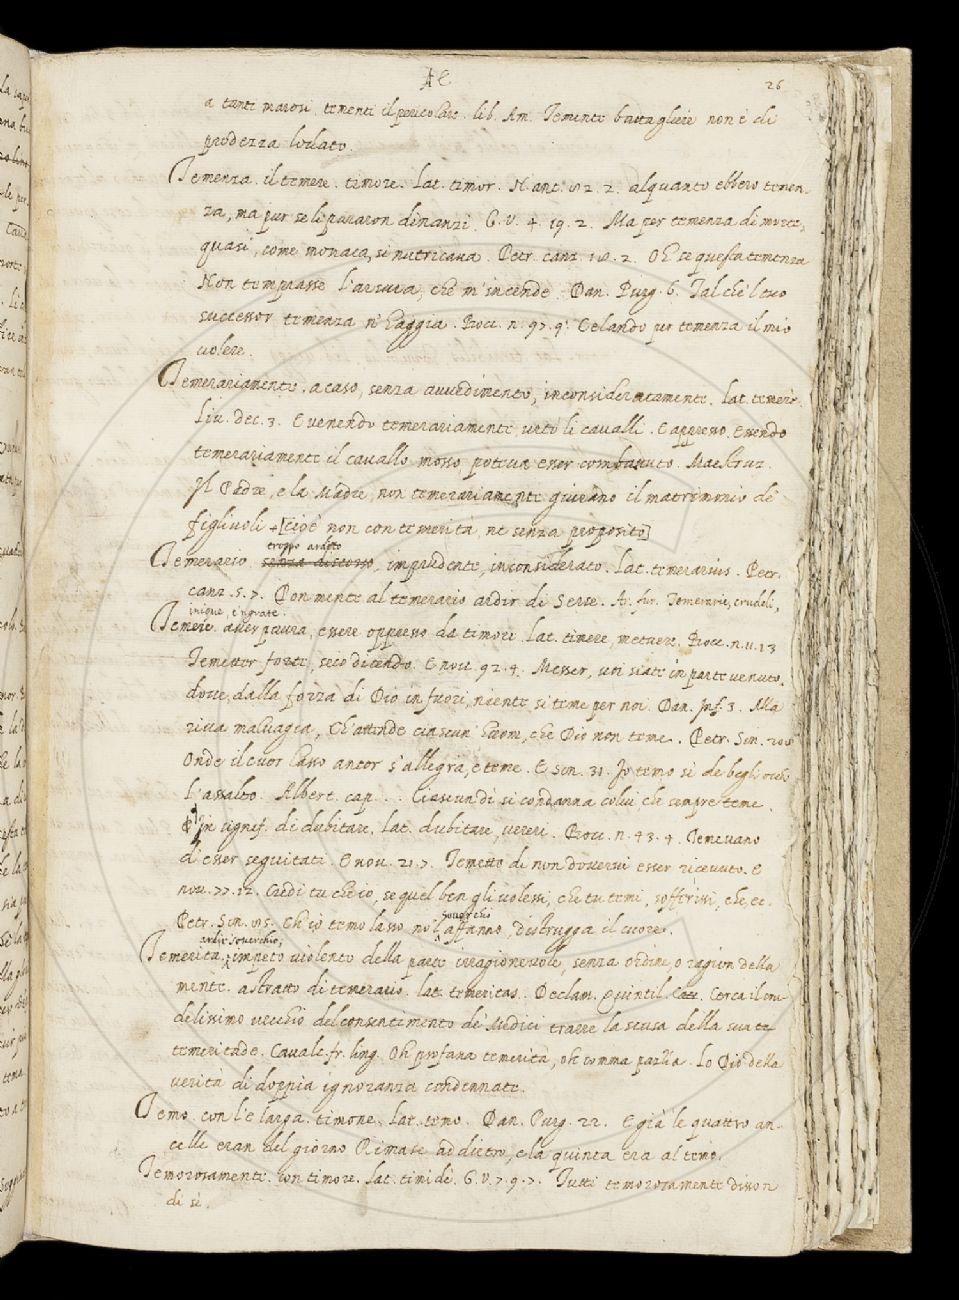 TE 26
a tanti marosi tementi il pericolare. lib. Am. Temente battagliere non è di
prodezza lodato.
Temenza. il temere. timore. Lat. timor. N. ant. 82. 2. alquanto ebbero temen-
za, ma pur se li pararon dinanzi. G. V. 4. 19. 2. Ma per temenza di morte,
quasi, come monaca, si nutricava. Petr. canz. 18. 2. Oh se questa temenza
Non temprasse l'arsura, che m'incende. Dan. Purg. 6. Tal che 'l tuo
successor temenza n'haggia. Bocc. n. 97. 9. Celando per temenza il mio
volere.
Temerariamente. a caso, senza avvedimento, inconsideratamente. Lat. temere.
Liv. dec. 3. E venendo temerariamente urtò li cavalli. E appresso. Essendo
temerariamente il cavallo mosso poteva esser combattuto. Maestruz.
Il Padre, e la Madre, non temerariamente giurano il matrimonio de'
figlivoli + [cioè non con temerità, ne senza proposito]
troppo ardito
Temerario. senza discorso, imprudente, inconsiderato. Lat. temerarius. Petr.
canz. 5. 7. Pon mente al temerario ardir di Serse. Ar. fur. Temerarie, crudeli,
inique, e ingrate.
Temere. aver paura, essere oppresso da timore. Lat. timere, metuere. Bocc. n. 11. 13
Temettor forte, seco dicendo. E nov. 92. 4. Messer, voi siate in parte venuto,
dove, dalla forza di Dio in fuori, niente si teme per noi. Dan. Inf. 3. Alla
riva malvagia, Ch'attende ciascun' huom, che Dio non teme. Petr. Son. 208
Onde il cuor lasso ancor s'allegra, e teme. E Son. 31. Io temo sì de' begli occhi
L'assalto. Albert. cap. . . Ciascun dì si condanna colui che sempre teme.
In signif. di dubitare. Lat. dubitare, vereri. Bocc. n. 43. 4. Temevano
d'esser seguitati. E nov. 21. 7. Temetto di non dovervi esser ricevuto. E
nov. 77. 12. Credi tu che io, se quel ben gli volessi, che tu temi, sofferissi, che, ec.
soverchio
Petr. Son. 85. Ch'io temo lasso no 'l affanno, distrugga il cuore.
ardir soverchio,
Temerità. impeto violento della parte irragionevole, senza ordine, o ragion della
mente. astratto di temerario. lat. temeritas. Declam. Quintil. Cerca il cru-
delissimo vecchio del consentimento de' Medici trarre la scusa della sua
temeritade. Cavalc. fr. ling. Oh profana temerità, oh somma pazzia. Lo Dio della
verità di doppia ignoranza condennate.
Temo. con l'e larga. timone. Lat. temo. Dan. Purg. 22. E già le quattro an-
celle eran del giorno Rimase addietro, e la quinta era al temo.
Temorosamente. con timore. Lat. timidè. G. V. 7. 9. 7. Tutti temorosamente disson
di sì.